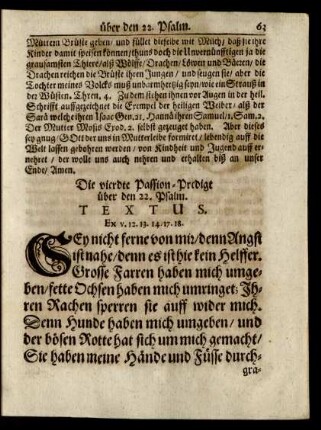 über den 22. Psalm. 63
Müttern Brüste geben/ und füllet dieselbe mit Milch/ daß sie ihre
Kinder damit speisen können/ thuns doch die Unvernünfftigen ja die
grausamsten Thiere/ alß Wölffe/ Drachen/ Löwen und Bären/ die
Drachen reichen die Brüste ihren Jungen/ und seugen sie/ aber die
Tochter meines Volcks muß unbarmhertzig seyn/ wie ein Strauß in
der Wüsten. Thren. 4. Zu dem stehen ihnen vor Augen in der heil.
Schrifft auffgezeichnet die Exempel der heiligen Weiber/ alß der
Sara welche ihren Isaac Gen. 21. Hanna ihren Samuel/ 1. Sam. 2.
Der Mutter Mosis Exod. 2. selbst gezeuget haben. Aber dieses
sey gnug/ GOtt der uns in Mutterleibe formiret/ lebendig auff die
Welt lassen gebohren werden/ von Kindheit und Jugend auff er-
nehret/ der wolle uns auch nehren und erhalten biß an unser
Ende/ Amen.
Die vierdte Passion-Predigt
über den 22. Psalm.
TEXTUS.
Ex v. 12. 13. 14. 17. 18.
SEy nicht ferne von mir/ denn Angst
ist nahe/ denn es ist hie kein Helffer.
Grosse Farren haben mich umge-
ben/ fette Ochsen haben mich umringet: Ih-
ren Rachen sperren sie auff wider mich.
Denn Hunde haben mich umgeben/ und
der bösen Rotte hat sich um mich gemacht/
Sie haben meine Hände und Füsse durch-
gra-